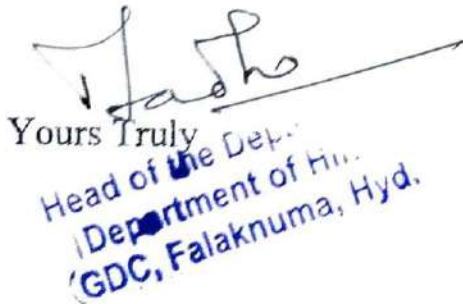 Yours Truly
Head of the Dep
Department of Hi
GDC, Falaknuma, Hyd.